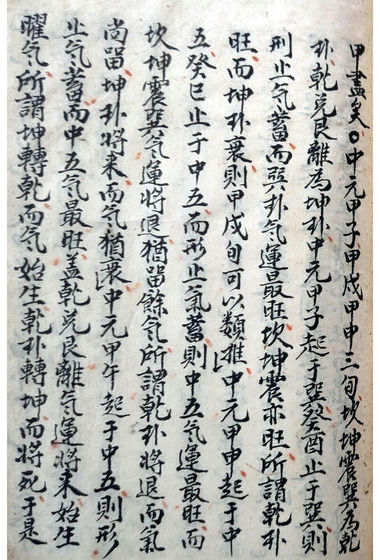 甲盡矣○中元甲子甲戌甲申三旬坎坤震巽為乾
卦乾兌艮離為坤卦中元甲子起于巽癸酉止于巽則
形止气蓄而巽卦气運最旺坎坤震亦旺所謂乾卦
旺而坤卦衰則甲戌旬可以類推中元甲申起于中
五癸巳止于中五而形止氣蓄則中五气運最旺而
坎坤震巽气運將退猶留餘气所謂乾卦將退而氣
尚留坤卦將來而气猶微中元甲午起于中五則形
止气蓄而中五气最旺盖乾兌艮離气運將來始生
曜气所謂坤轉乾而气始生乾卦轉坤而將死于是